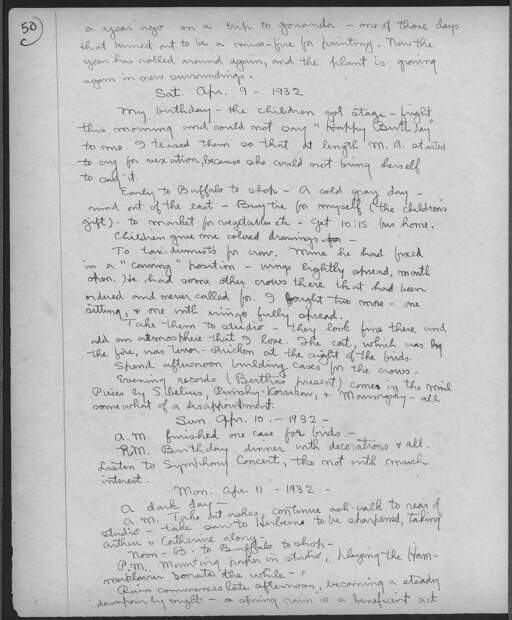 50
a year ago on a trip to Gowanda - one of those days
that turned out to be a miss-fire for painting. Now the
year has rolled around again, and the plant is growing
again in new surroundings.
Sat. Apr. 9 - 1932
My birthday - the children got stage-fright
this morning and could not say "Happy Birthday"
to me. I teased them so that at length M. A. started
to cry for vexation, because she could not bring herself
to say it.
Early to Buffalo to shop - A cold gray day -
wind out of the east - Buy tie for myself (the children's
gift) - to market for vegetables etc - get 10:15 bus home.
Children give me colored drawings -
To taxidermists for crow. Mine he had fixed
in a "cawing" position - wings lightly spread, mouth
open. He had some other crows there that had been
ordered and never called for. I bought two more - one
sitting, & one with wings fully spread.
Take them to studio - they look fine there and
add an atmosphere that I love. The cat, which was by
the fire, was terror-stricken at the sight of the birds.
Spend afternoon building cases for the crows.
Evening records (Bertha's present) come in the mail
Pieces by Sibelius, Rimsky-Korsakow, & Moussorgsky - all
somewhat of a disappointment.
Sun. Apr. 10. - 1932 -
A.M. finished one case for birds -
P.M. Birthday dinner with decorations & all.
Listen to Symphony Concert, tho not with much
interest.
Mon. Apr. 11 - 1932 -
A dark day -
A.M. Take out ashes, continue ash-walk to rear of
studio - take saw to to be sharpened, taking
Arthur & Catherine along -
Noon - B. to Buffalo to shop -
P.M. Mounting paper in studio, playing the Ham-
merklavier Sonata the while -
Rain commences late afternoon, becoming a steady
downpour by night - a spring rain is a beneficent act